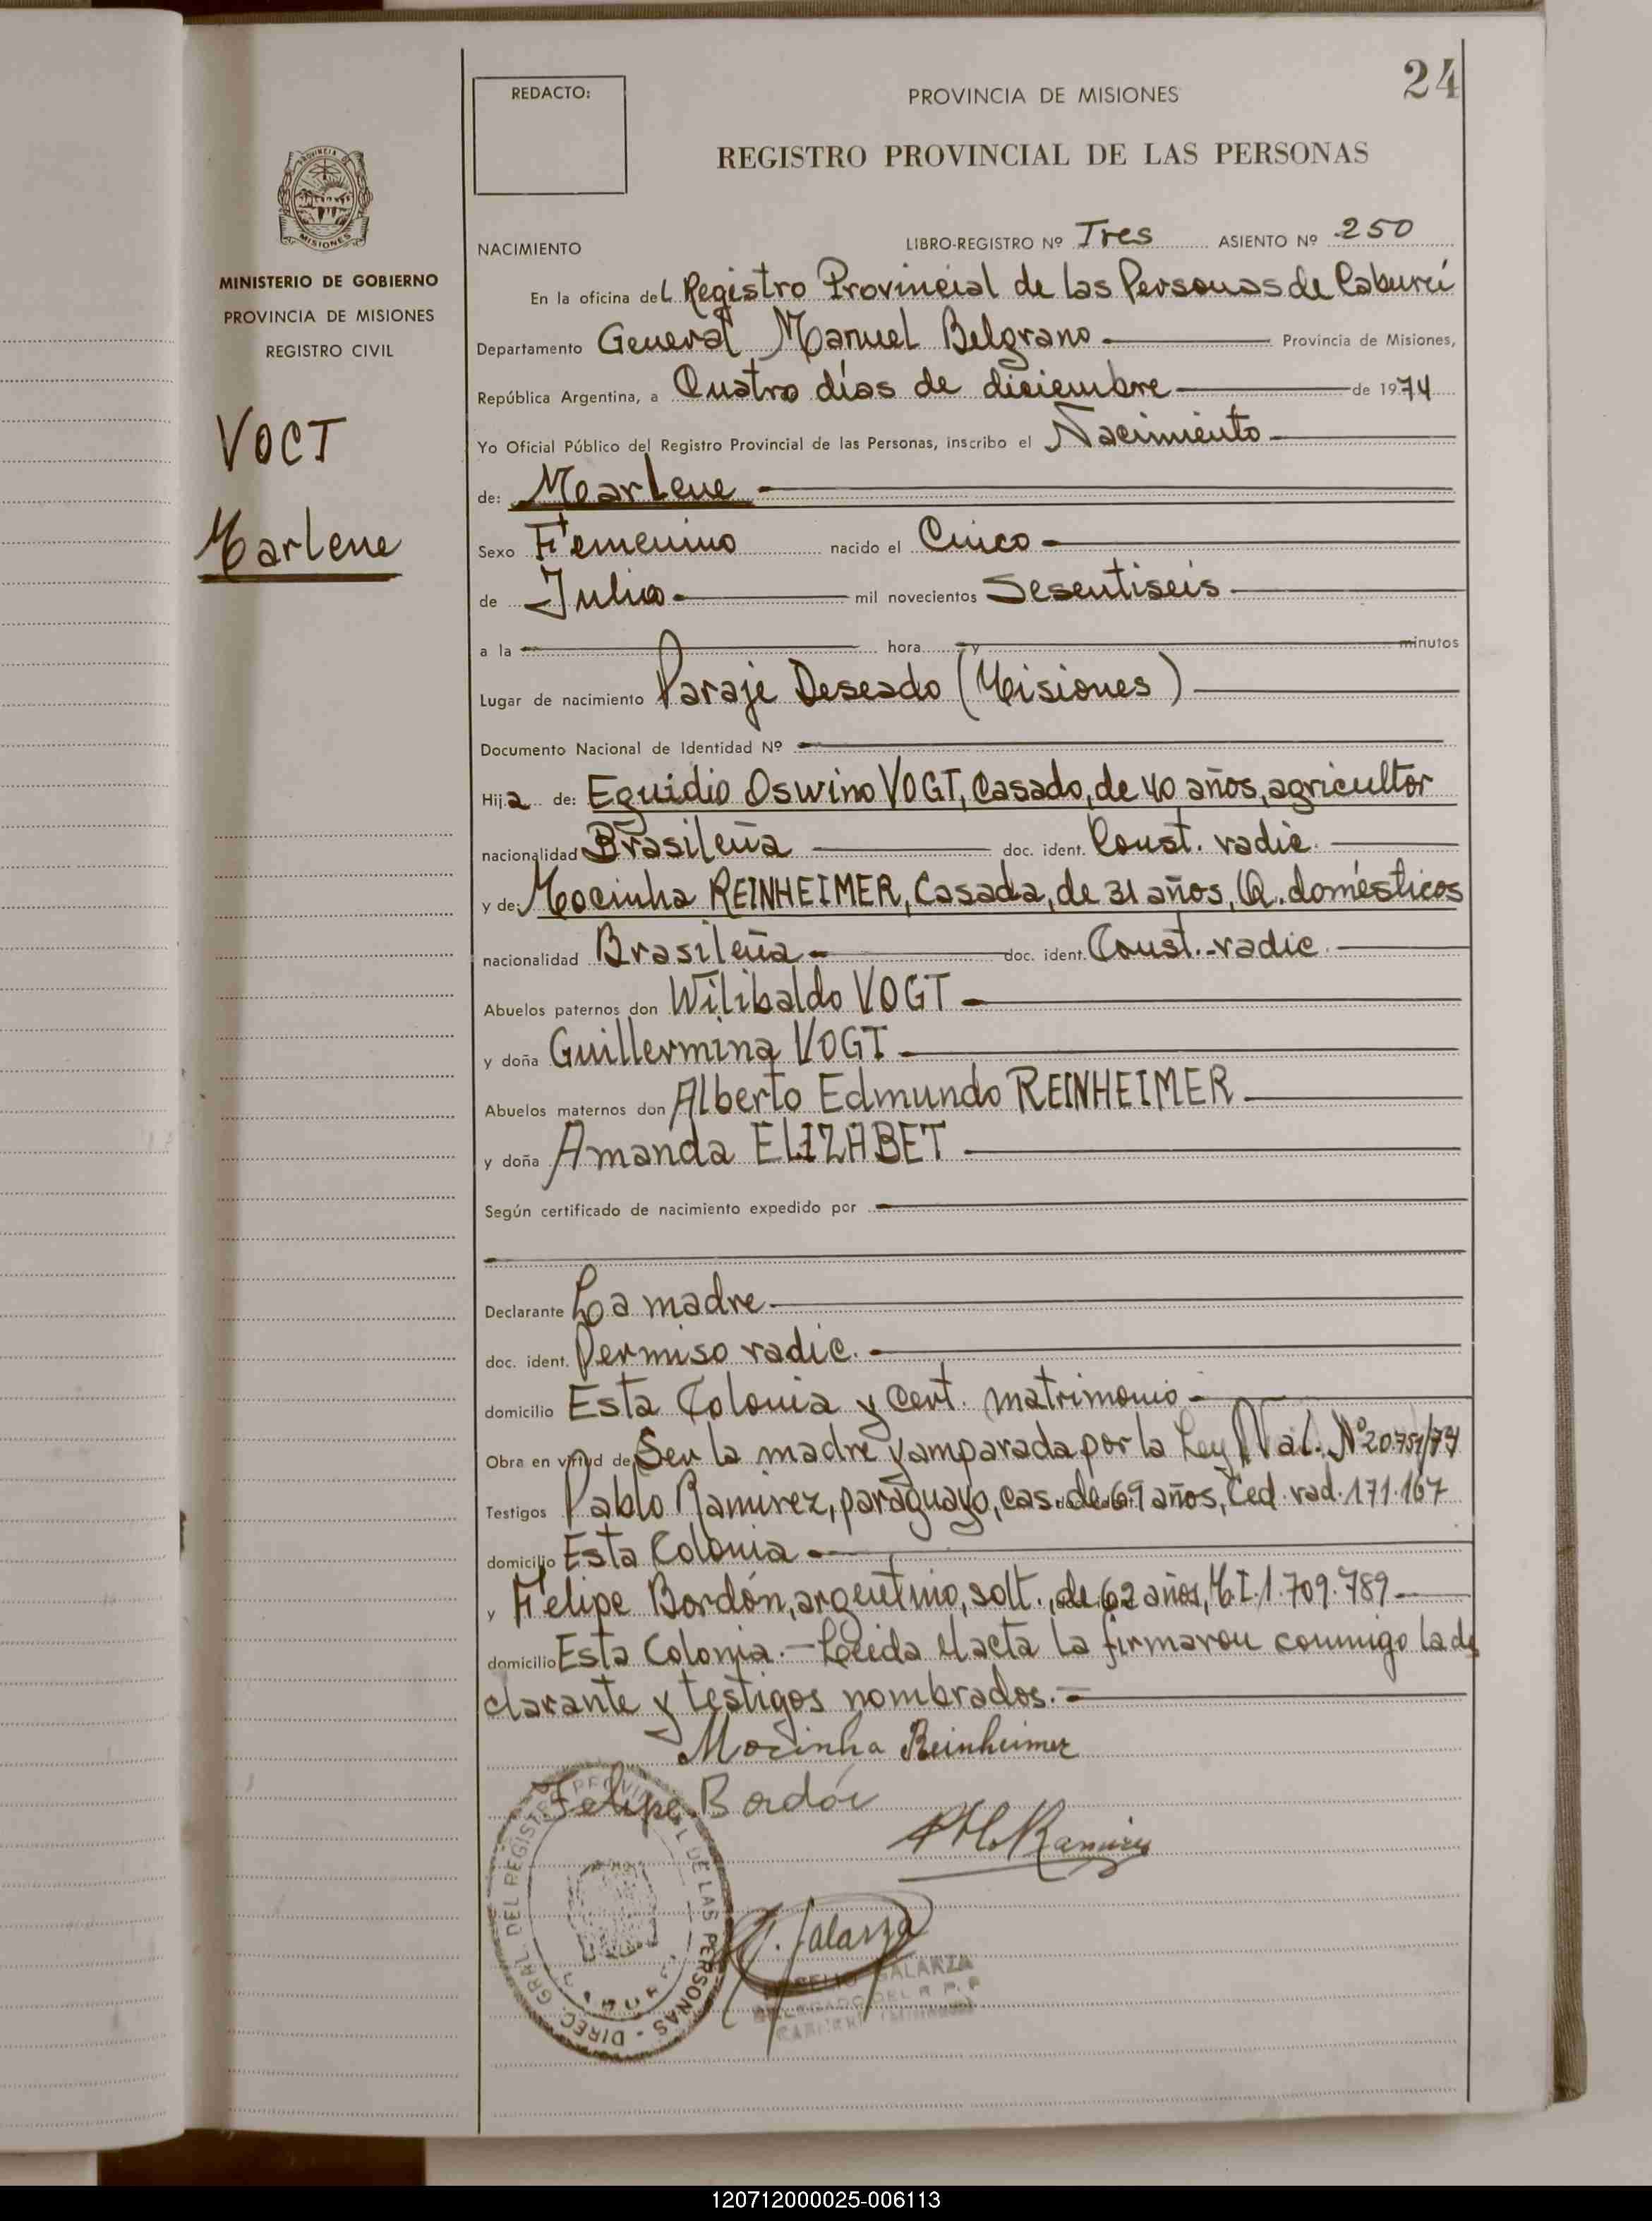 24
REDACTO:
PROVINCIA DE MISIONES
REGISTRO PROVINCIAL DE LAS PERSONAS
PROVINCIA DE
MISIONES
MINISTERIO DE GOBIERNO
PROVINCIA DE MISIONES
REGISTRO CIVIL
VOGT
Marlene
NACIMIENTO LIBRO-REGISTRO Nº Tres ASIENTO Nº 250
En la oficina del Registro Provincial de las Personas de Cabureí
Departamento General Manuel Belgrano Provincia de Misiones,
República Argentina, a Cuatro días de diciembre de 1974
Yo Oficial Público del Registro Provincial de las Personas, inscribo el Nacimiento
de: Marlene
Sexo Femenino nacido el Cinco
de Julio mil novecientos Sesentiseis
a la hora y minutos
Lugar de nacimiento Paraje Deseado (Misiones)
Documento Nacional de Identidad Nº
Hija de: Eguidio Oswino VOGT, Casado, de 40 años, agricultor
nacionalidad Brasileña doc. ident. Const. radic.
y de: Mocinha REINHEIMER, Casada, de 31 años, Q. domésticos
nacionalidad Brasileña doc. ident. Const. radic.
Abuelos paternos don Wilibaldo VOGT
y doña Guillermina VOGT
Abuelos maternos don Alberto Edmundo REINHEIMER
y doña Amanda ELIZABET
Según certificado de nacimiento expedido por
Declarante La madre
doc. ident. Permiso radic.
domicilio Esta Colonia y cert. matrimonio
Obra en virtud de Ser la madre y amparada por la Ley Nal. Nº 20.751/74
Testigos Pablo Ramirez, paraguayo, cas. de 69 años, Ced. rad. 171.167
domicilio Esta Colonia
y Felipe Bordón, argentino, solt., de 62 años, M.I. 1.709.789
domicilio Esta Colonia.- Leida el acta la firmaron conmigo la de
clarante y testigos nombrados.
Mocinha Reinheimer
Felipe Bordón
Ramirez
DIREC. GRAL. DEL REGISTRO PROVINCIAL DE LAS PERSONAS
Galarza
GALARZA
DELEGADO DEL R.P.P.
120712000025-006113